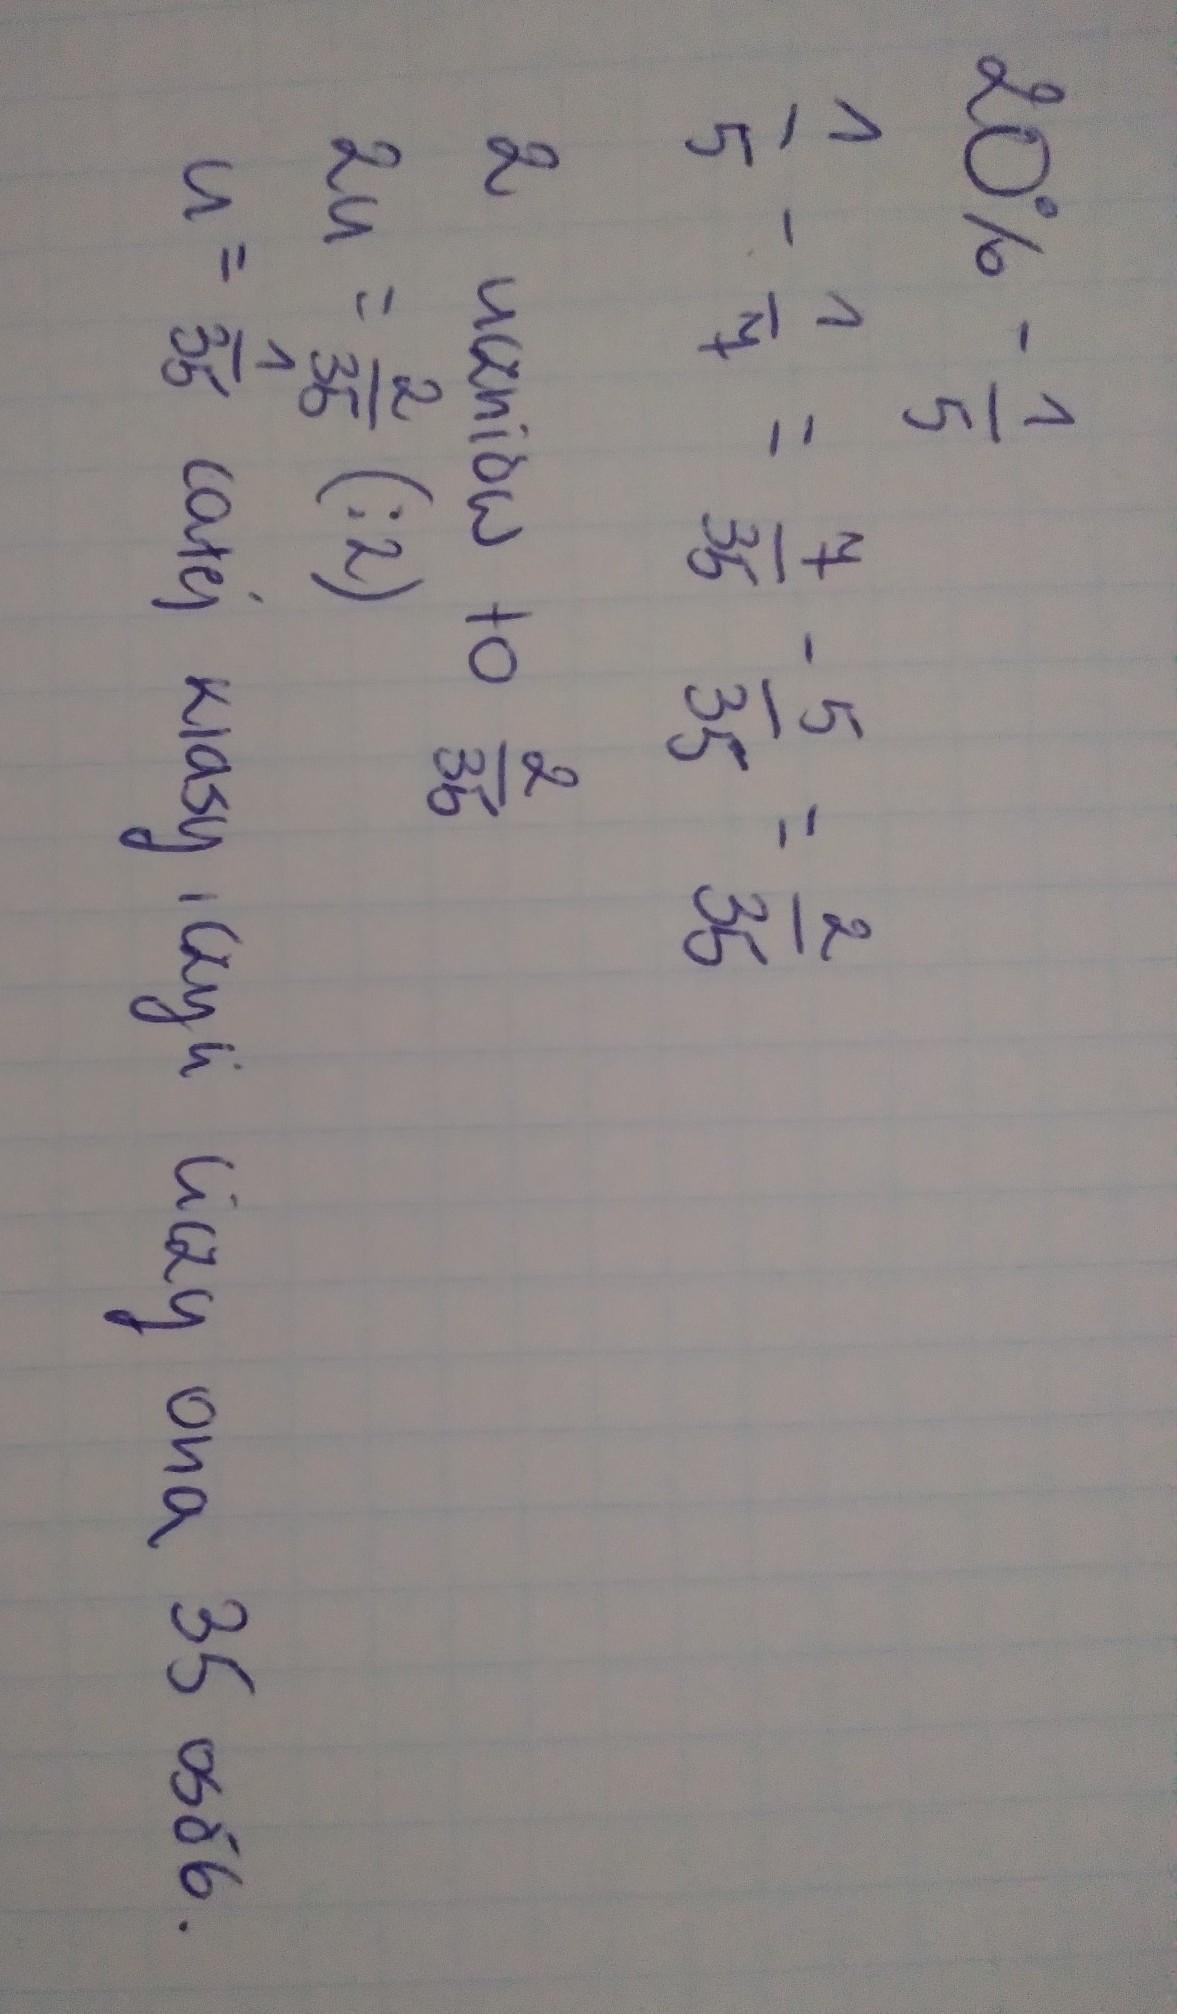 20% - 1/5
1/5 - 1/7 = 7/35 - 5/35 = 2/35
2 uczniów to 2/35
2u = 2/35 (:2)
u = 1/35 całej klasy, czyli liczy ona 35 osób.